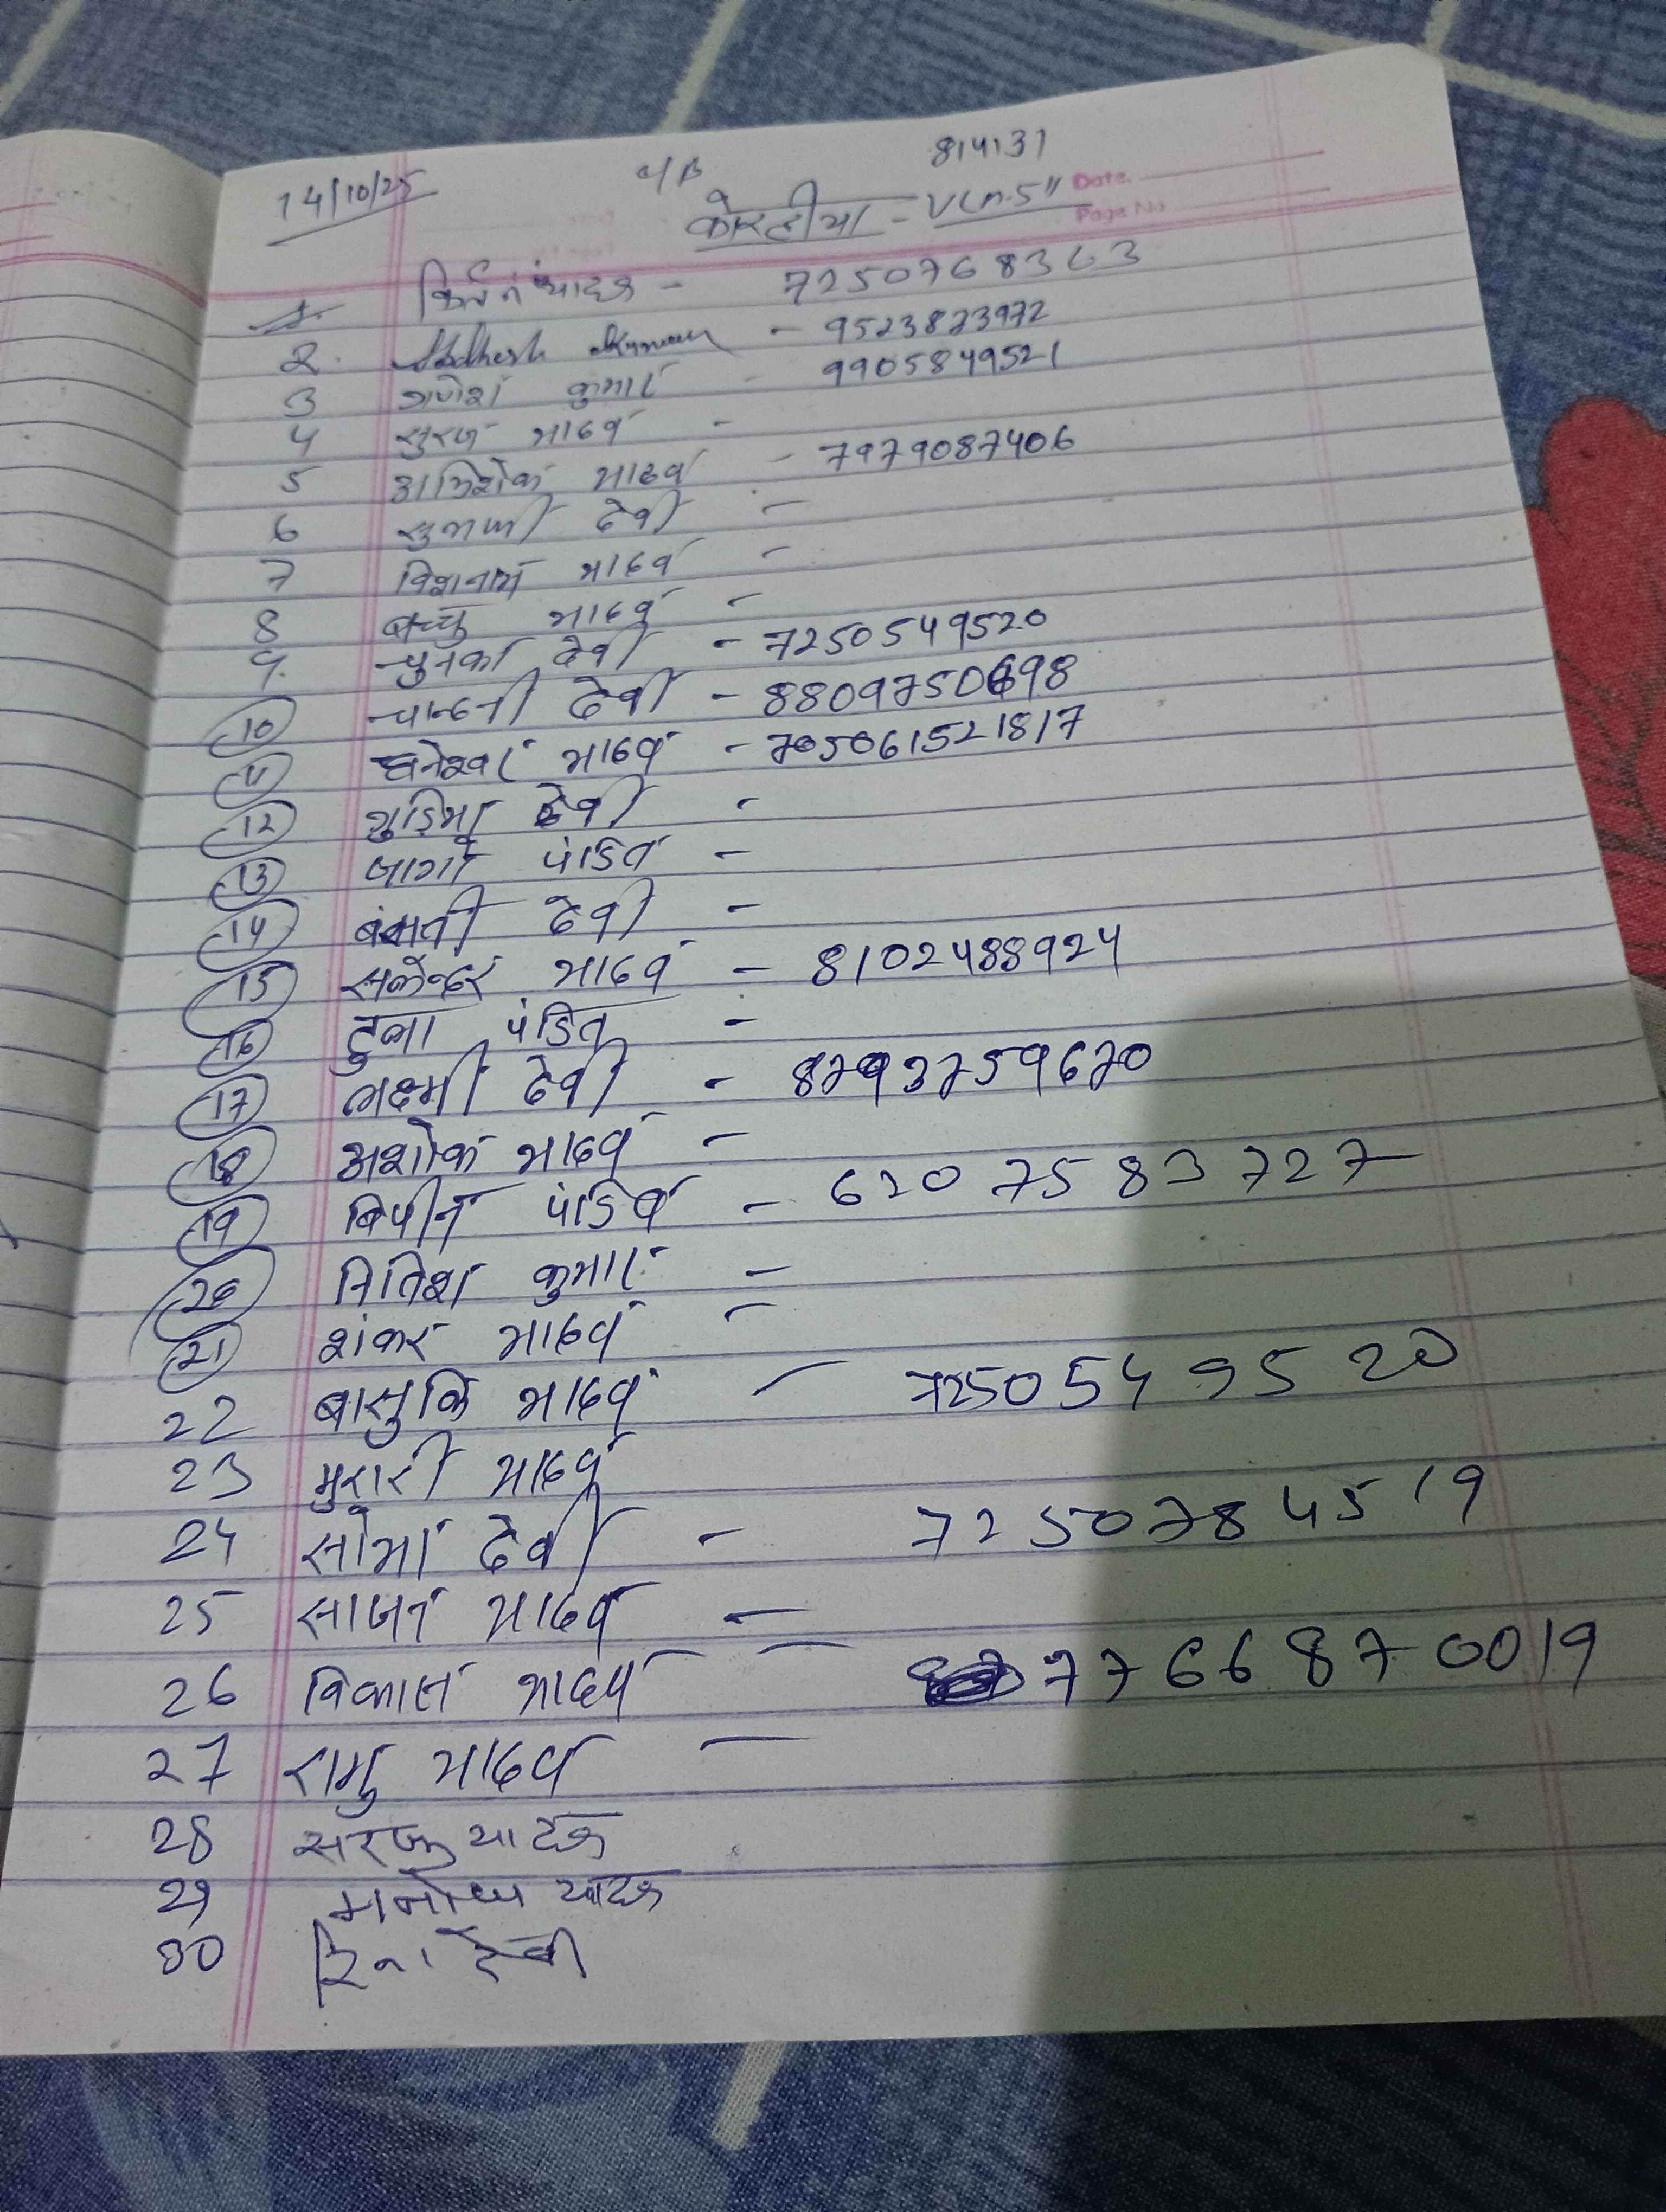 814131
14/10/25
कोरहीया - VLM-5"
Date.
Page No
1. किर्तन यादव - 7250768363
2. Abdhesh Kumar - 9523823972
3 गणेश कुमार - 9905849521
4 सुरज यादव -
5 अभिशेक यादव - 7979087406
6 देवी -
7 विशनाथ यादव -
8 बच्चु यादव -
9. चुनकी देवी - 7250549520
10 चान्दनी देवी - 8809750698
11 घनेश्वर यादव - 705061521817
12 गुड़िया देवी -
13 जागो पंडित -
14 बंसती देवी -
15 सकेन्दर यादव - 8102488924
16 टुना पंडित -
17 लक्ष्मी देवी - 8793759670
18 अशोक यादव -
19 बिपीन पंडित - 6207583727
20 नितिश कुमार -
21 शंकर यादव -
22 बासुकि यादव - 7250549520
23 मुरारी यादव
24 सोमा देवी - 7250784519
25 साजन यादव -
26 विकास यादव - 7766870019
27 रामु यादव -
28 सरजु यादव
29 मनोज यादव
30 रिना देवी